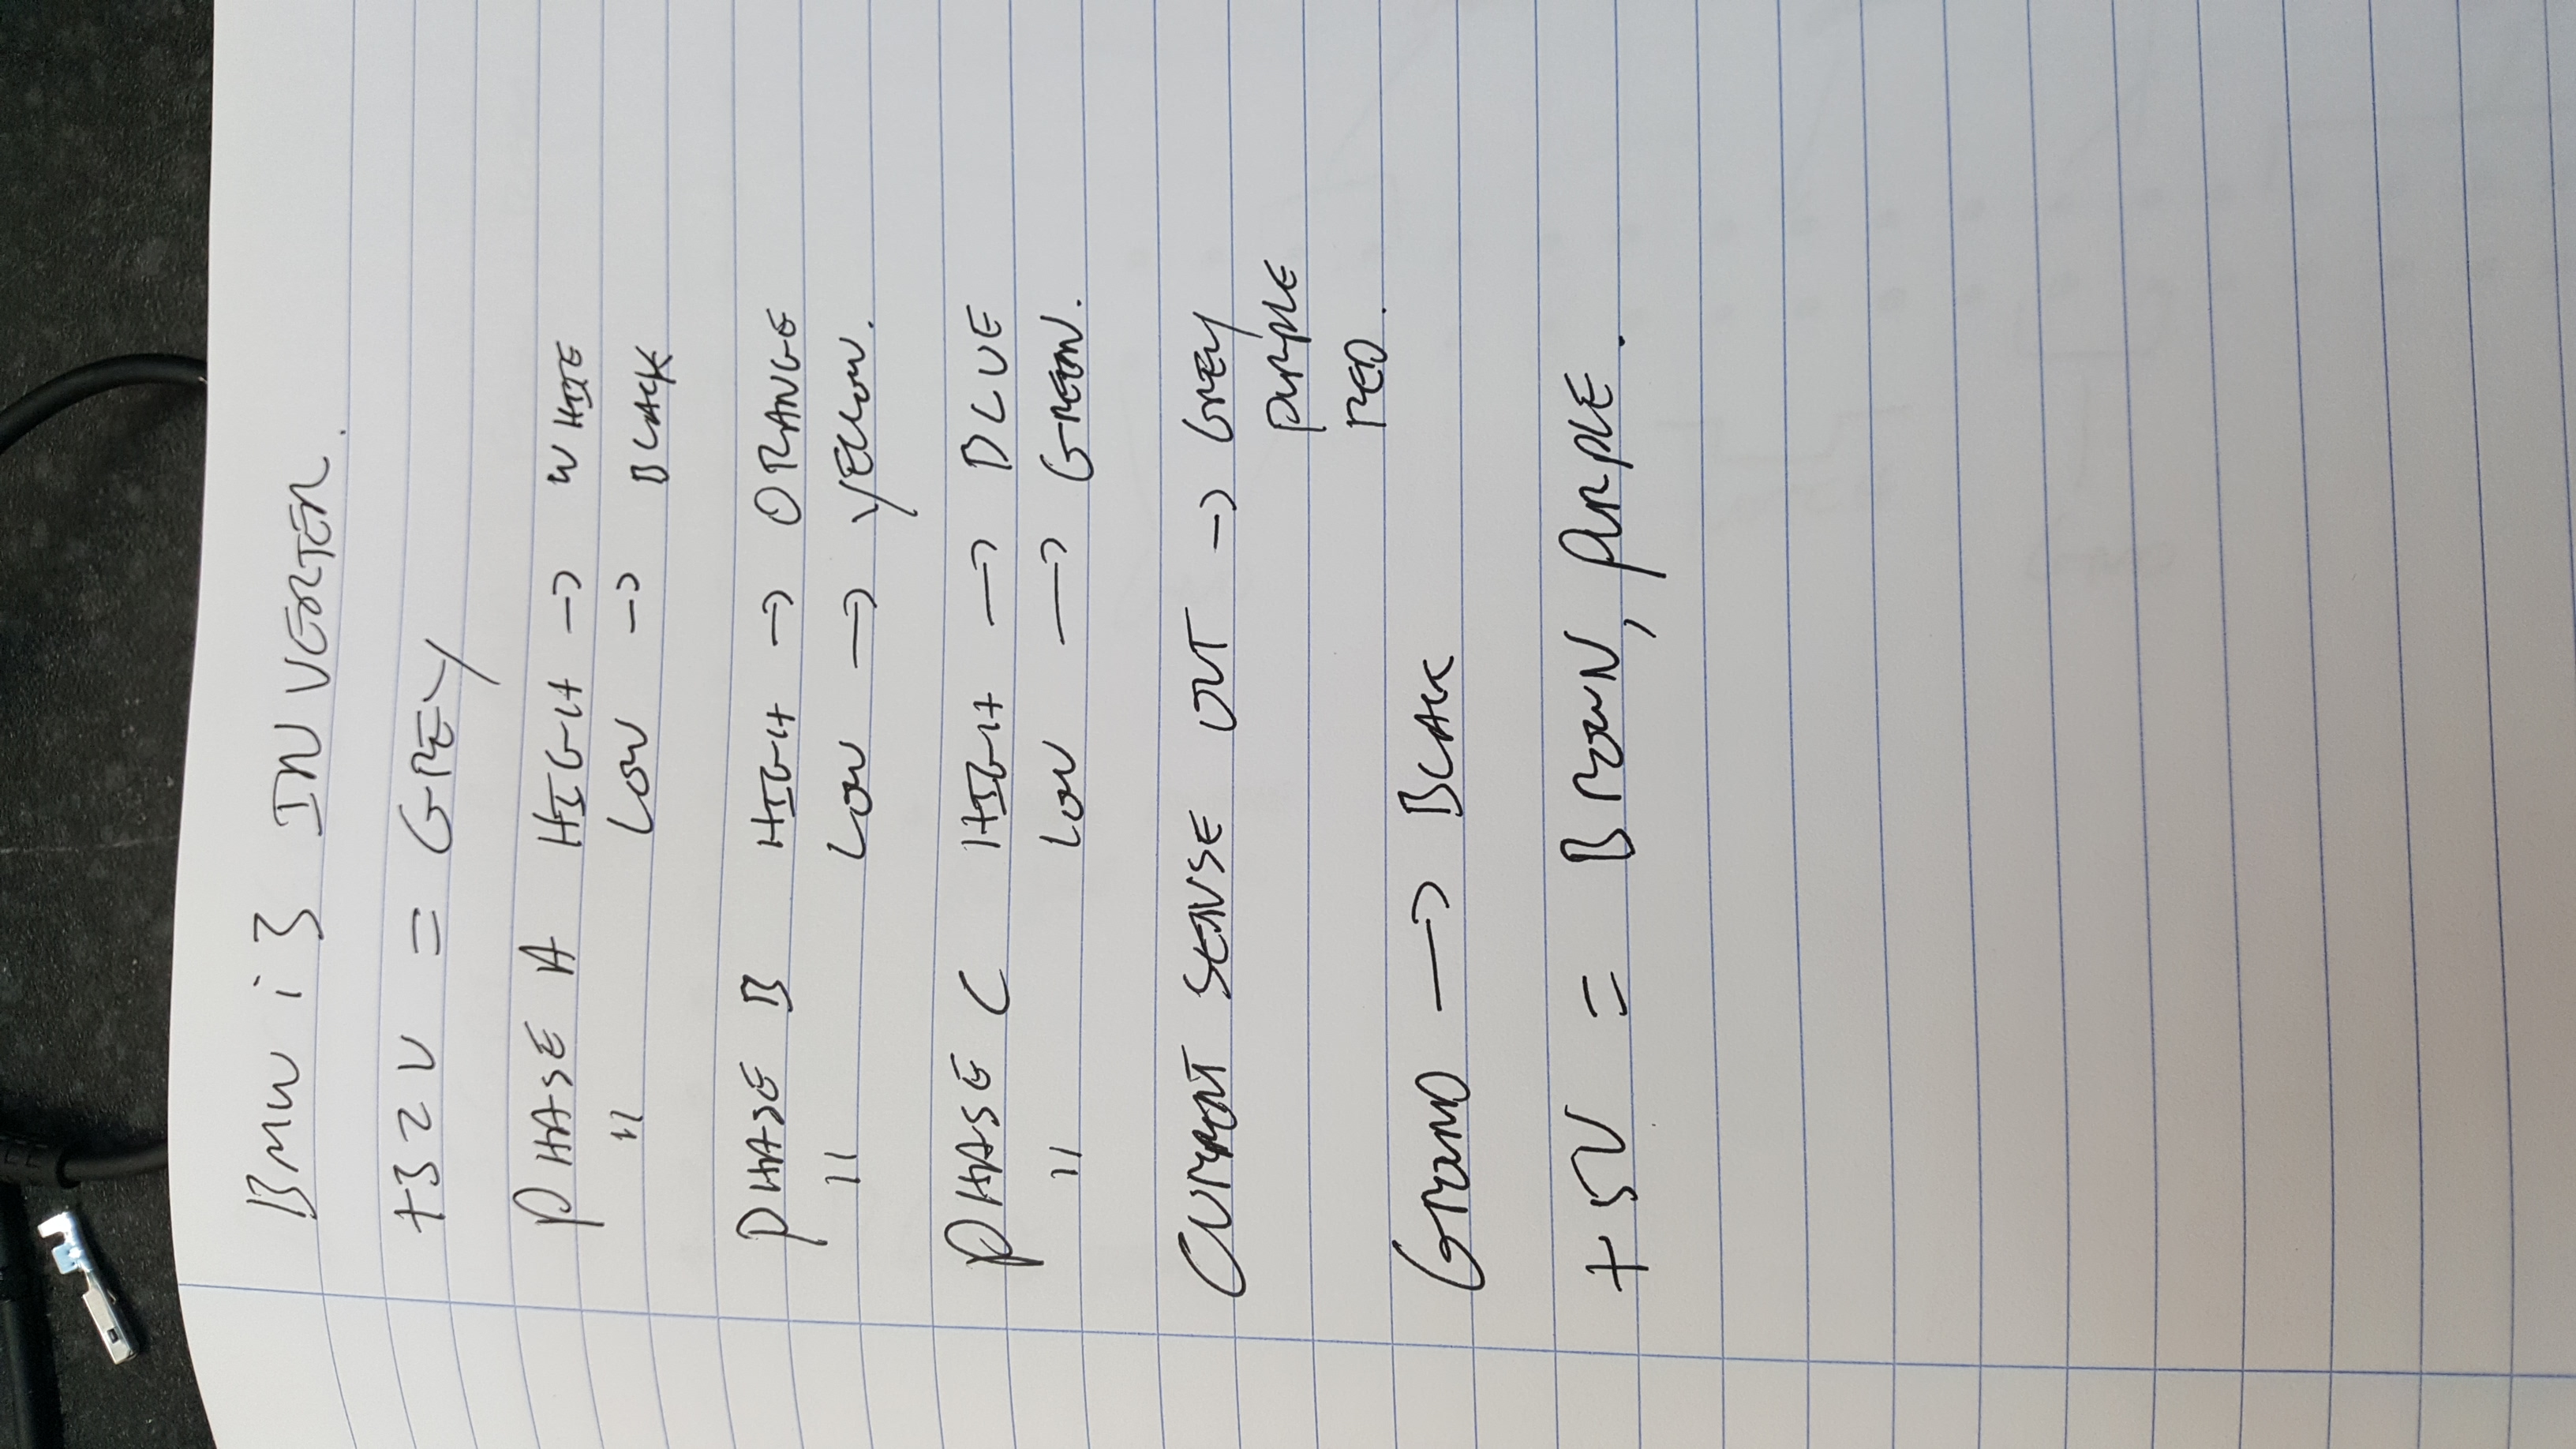 BMW i3 INVERTER.
+32V = GREY
PHASE A HIGH → WHITE
" LOW → BLACK
PHASE B HIGH → ORANGE
" LOW → YELLOW.
PHASE C HIGH → BLUE
" LOW → GREEN.
CURRENT SENSE OUT → GREY
PURPLE
RED.
GROUND → BLACK
+5V = BROWN, PURPLE.